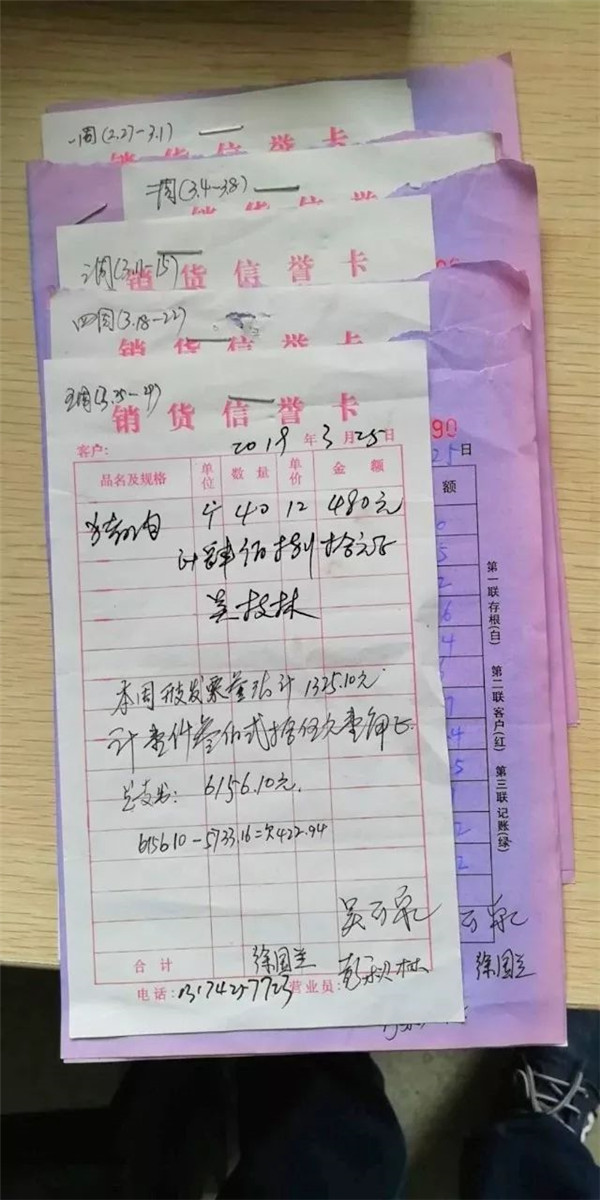 一周(2.27-3.1)
销货信誉卡
二周(3.4-3.8)
销货信誉
三周(3.11-15)
销货信誉卡
四周(3.18-22)
销货信誉卡
五周(3.25-29)
销货信誉卡
客户:
2019年3月25日
品名及规格 单位 数量 单价 金额
猪肉 斤 40 12 480元
计肆佰捌拾元正
本周开支发票叁张计1325.10元
计壹仟叁佰贰拾伍元壹角正
总支出: 6156.10元.
615610-5733.16=欠422.94
合计
徐国兰
电话:
营业员:
90
25日
额
第一联存根(白)
第二联客户(红)
第三联记账(绿)
徐国兰